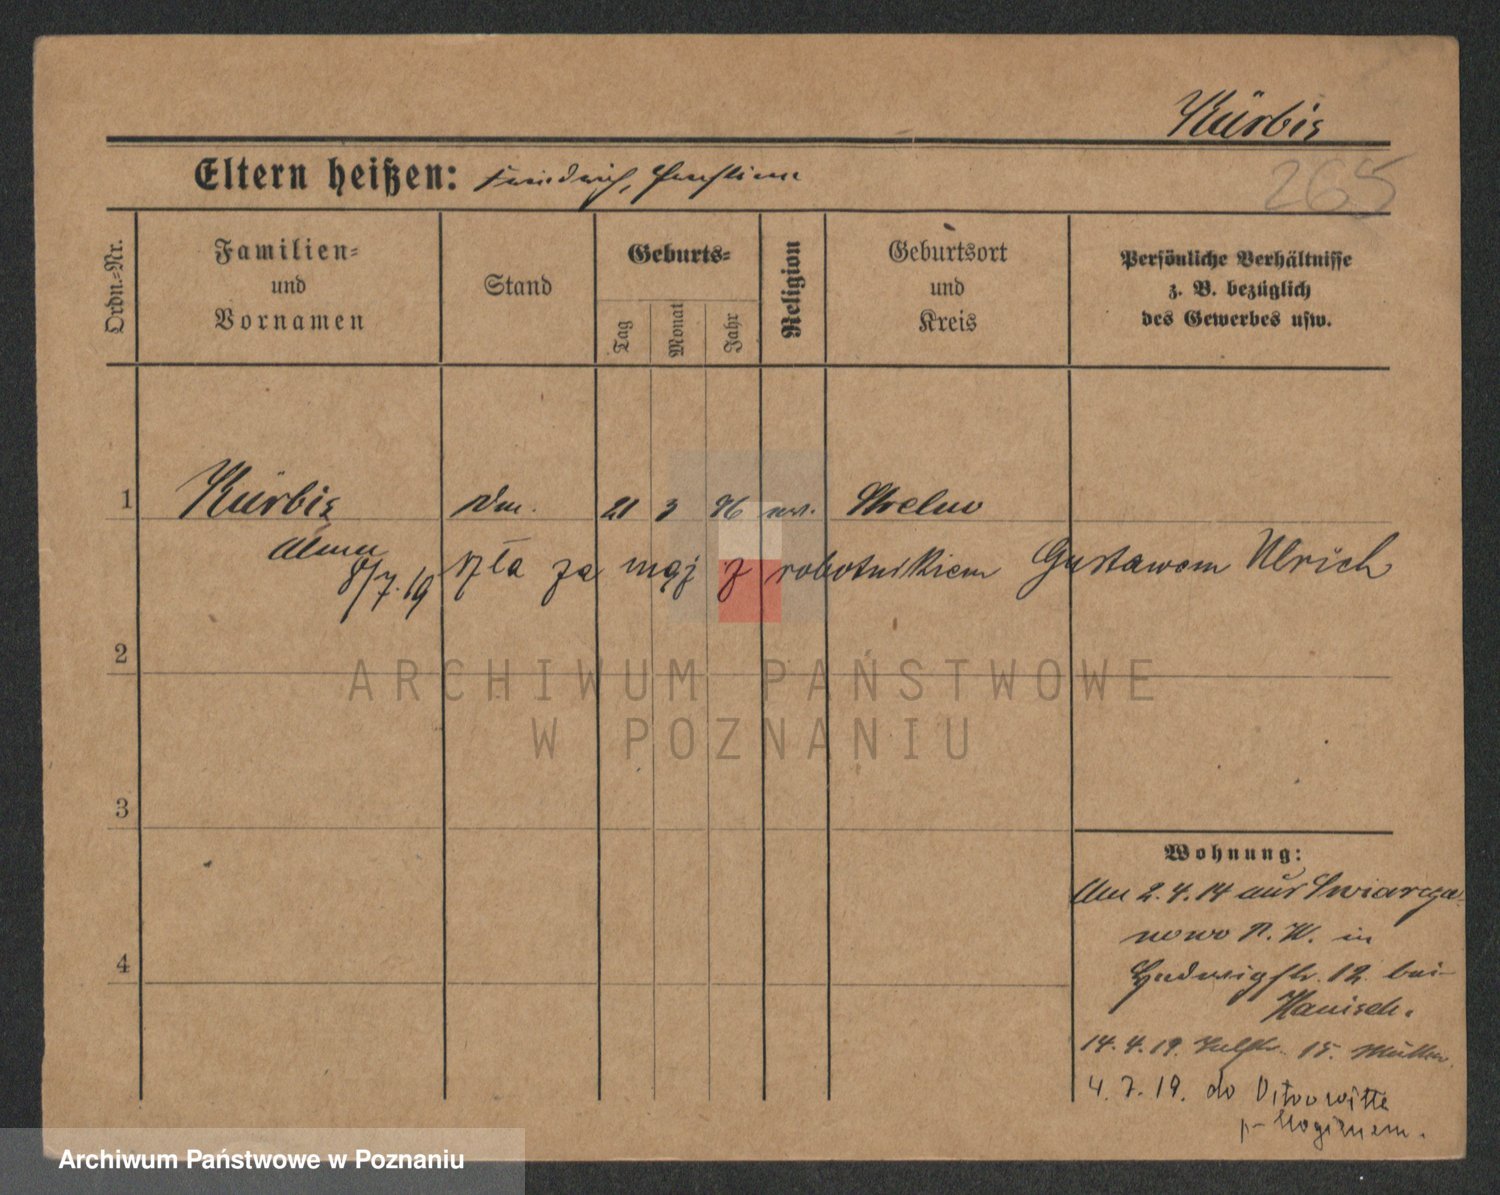 Kürbis
Eltern heißen: Friedrich,
265
Ordn.-Nr.
Familien-
und
Vornamen
Stand
Geburts-
Tag
Monat
Jahr
Religion
Geburtsort
und
Kreis
Persönliche Verhältnisse
z. B. bezüglich
des Gewerbes usw.
1 Kürbis 21 3 96 Strelno
Alma
8/7.19 szła za mąj z robotnikiem Gustawem Ulrich
2
3
4
Wohnung:
Am 2.4.14 aus
in
Hedwigstr. 12 bei
Hanisch.
14.4.19. 15. Müller
4.7.19. do
p-Mogilnem.
ARCHIWUM PAŃSTWOWE
W POZNANIU
Archiwum Państwowe w Poznaniu